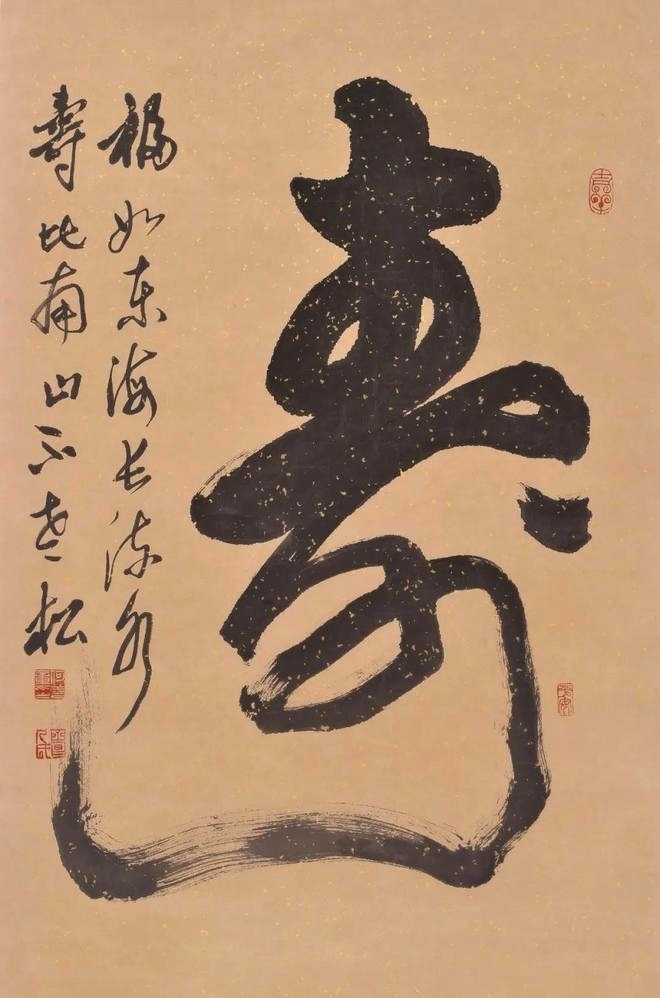 壽
福如东海长流水
壽比南山不老松